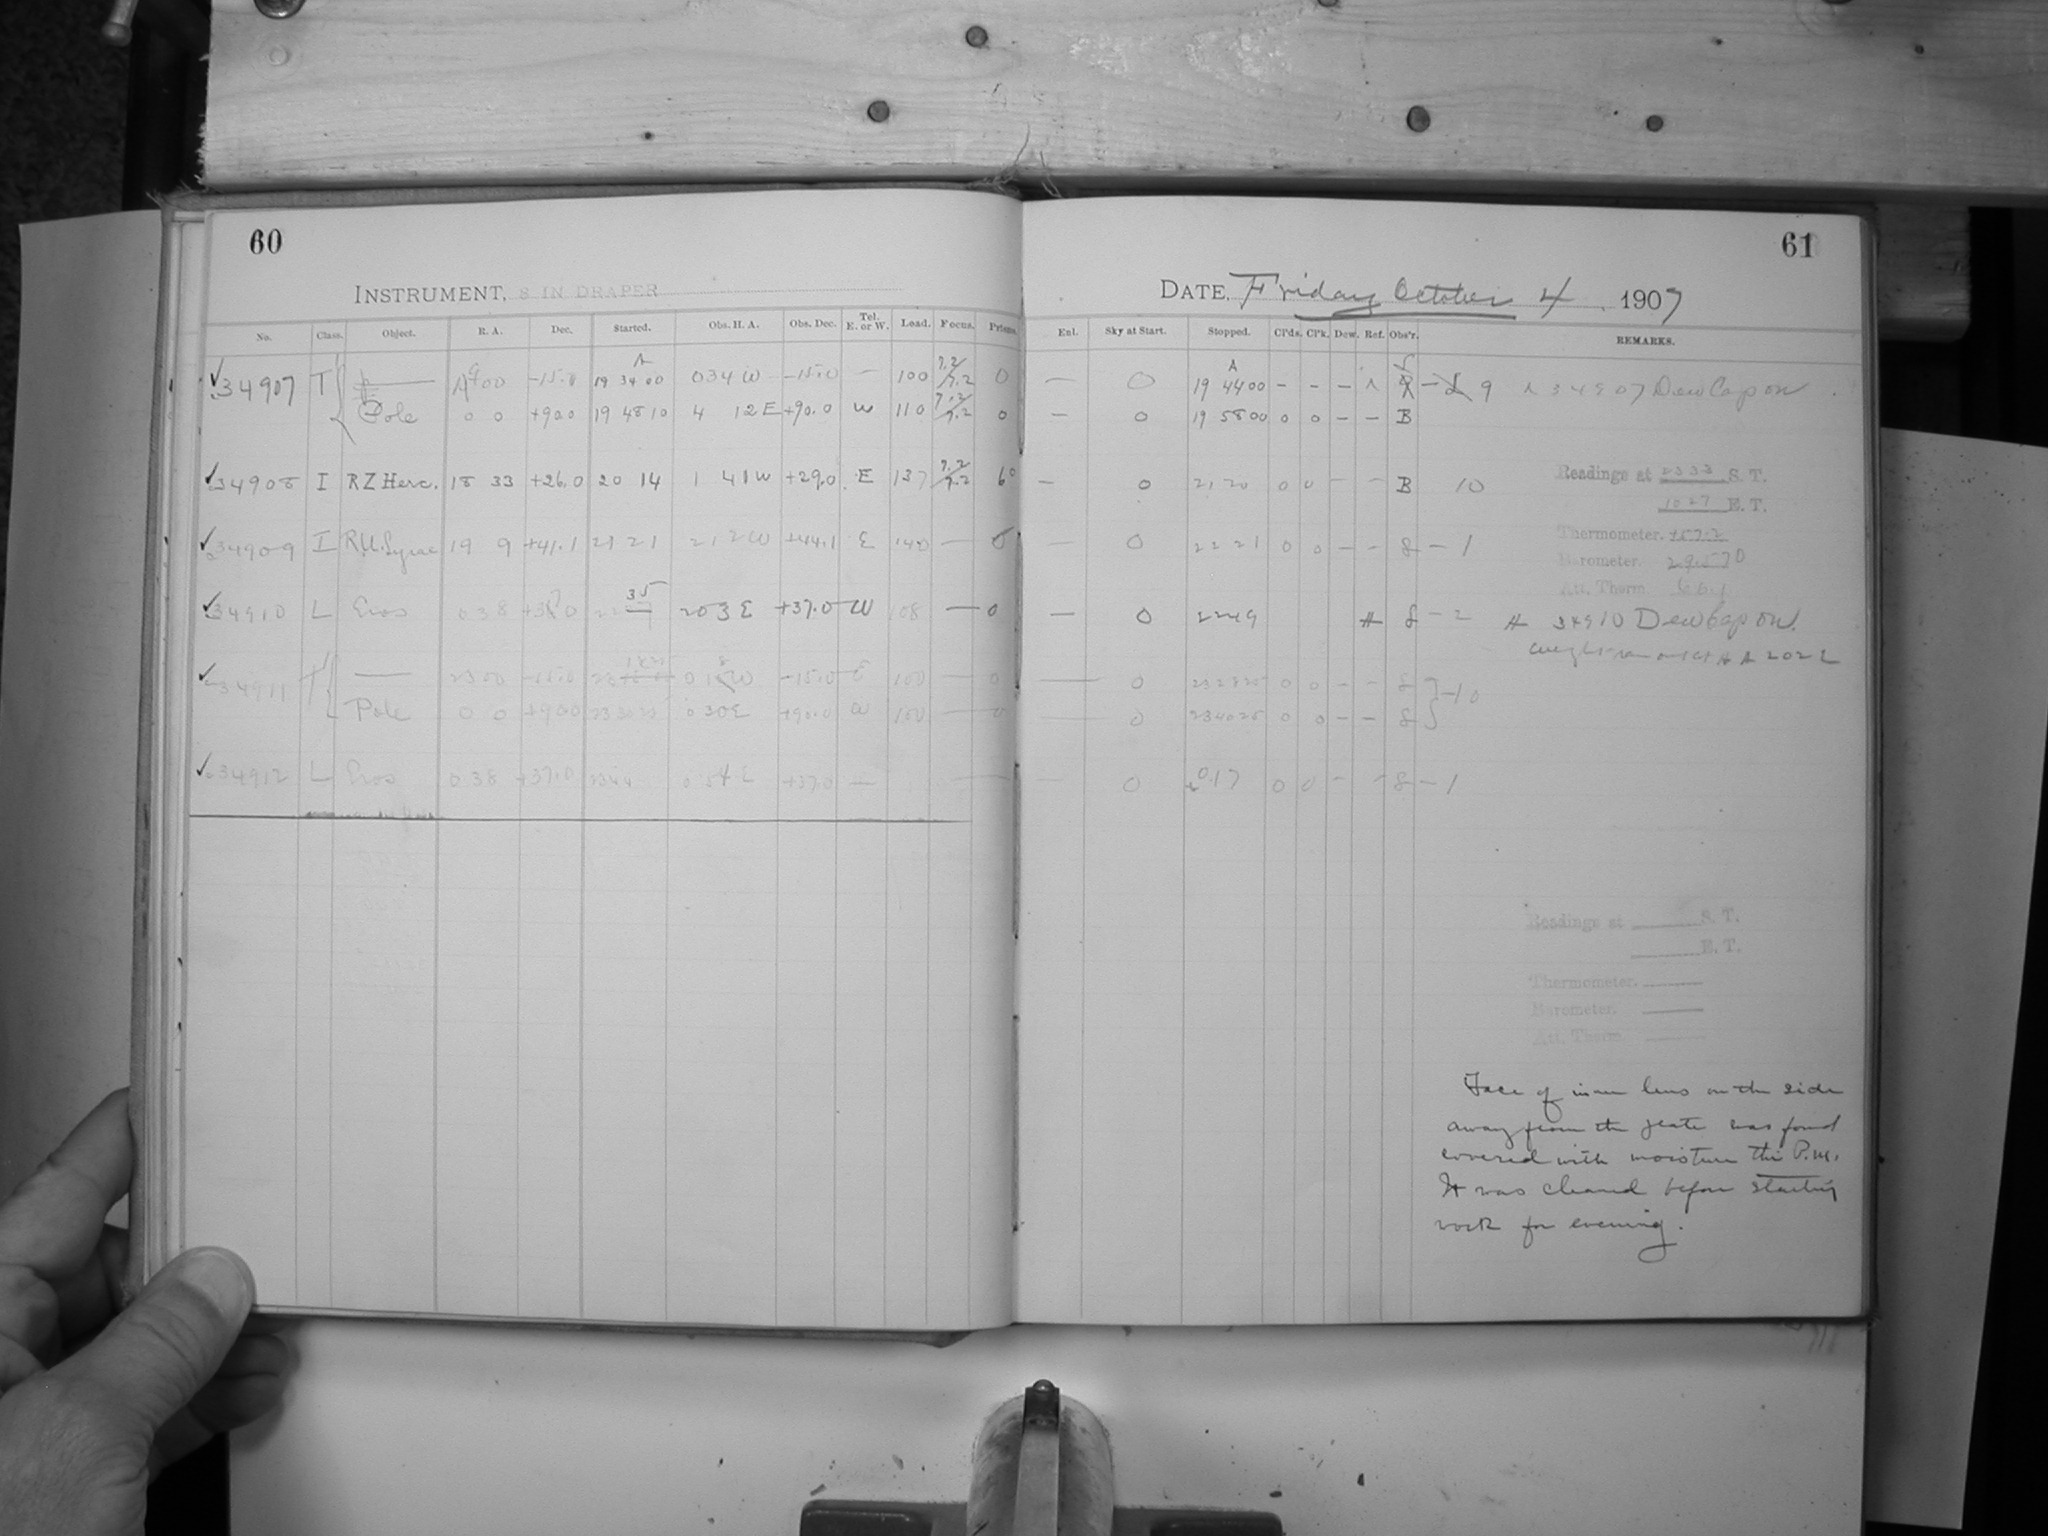 60
INSTRUMENT, 8 IN DRAPER
No. Class. Object. R. A. Dec. Started. Obs. H. A. Obs. Dec. Tel. E. or W. Lead. Focus. Prisms.
A
34907 T 19 00 -15.0 19 34 00 0 34 W -15.0 — 100 7.2/7.2 0
Pole 0 0 +90.0 19 48 10 4 12 E +90.0 W 110 7.2/7.2 0
34908 I RZ Herc. 18 33 +26.0 20 14 1 41 W +29.0 E 137 7.2/7.2 6°
34909 I RU. Lyrae 19 9 +41.1 21 21 2 12 W +44.1 E 140 —
34910 L Eros 0 38 22 35 2 03 E +37.0 W 108 — 0
34911 T — 23 00 -15.0 23 W -15.0 100 — 0
Pole 0 0 +90.0 0 30 E +90.0 W 100 — 0
34912 L Eros 0.38 +37.0 2344 0 54 E +37.0 — —
61
DATE, Friday October 4 1907
Enl. Sky at Start. Stopped. Cl'ds. Cl'k. Dew. Ref. Obs'r. REMARKS.
A
— 0 19 44 00 - - - A 9 A 34907 Dew Cap on
— 0 19 58 00 0 0 — — B
— 0 21 20 0 0 - - B 10
Readings at 2333 S. T.
1027 E. T.
— 0 22 21 0 0 - - 8 - 1
Thermometer.
Barometer. 29.570
Att. Therm
— 0 2249 # 8 - 2 # 34910 Dewcap on.
— 0 232825 0 0 - - 8 - 10
— 0 234025 0 0 - - 8
— 0 0 17 0 0 - - 8 - 1
Readings at S. T.
E. T.
Thermometer.
Barometer.
Att. Therm
Face of inner lens on the side
away from the plate was found
covered with moisture this P.M.
It was cleaned before starting
work for evening.